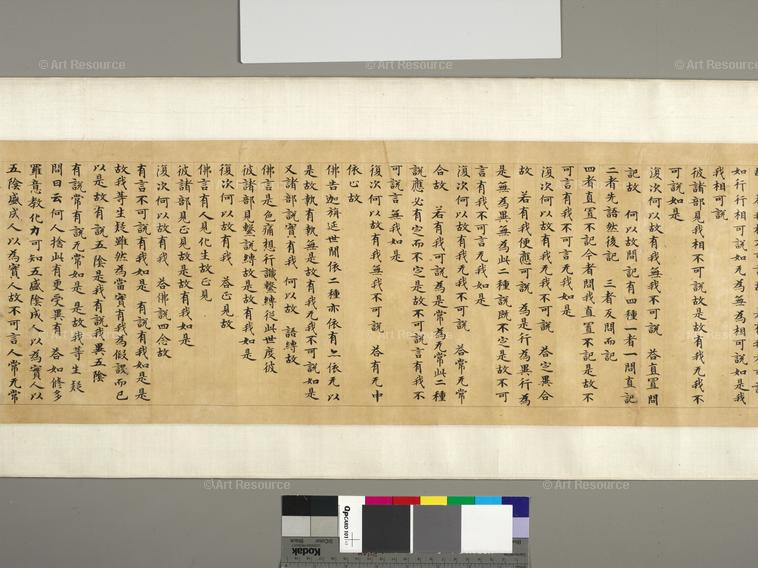 © Art Resource
© Art Resource
© Art Resource
如行行相可說如无為無相可說如是我
我相可說
彼諸部見我相不可說故是故有我无我不
可說如是
復次何以故有我無我不可說 荅直置問
記故 何以故問記有四種一者一問直記
二者先詰然後記 三者反問而記
四者直置不記今者問我直置不記是故不
可言有我不可言无我如是
復次何以故有我无我不可說 荅定異合
故 若有我便應可說 為是行為異行為
是無為異無為此二種說既不定是故不可
言有我不可言无我如是
復次何以故有我无我不可說 荅常无常
合故 若有我可說為是常為无常此二種
說應必有定而不定是故不可說言有我不
可說言無我如是
復次何以故有我無我不可說 荅有无中
依心故
佛告迦旃延世間依二種亦依有二依无以
是故執有執無是故有我无我不可說如是
又諸部說實有我 何以故 語縛故
佛言是色痛想行識繫縛從此世度彼
彼諸部見繫說縛故是故有我如是
復次何以故有我 荅正見故
佛言有人見化生故正見
彼諸部見正見故是故有我如是
復次何以故有我 荅佛說四念故
有言不可說有我如是 有說有我如是是
故我等生疑雖然為當實有我為假設而已
以是故有說五陰是我有說我異五陰
有說常有說无常如是 是故我等生疑
問曰云何人捨此有更受異有 荅如修多
羅意教化力可知五盛陰成人以為實人以
五陰盛成人以為實人故不可言人常无常
© Art Resource
© Art Resource
Kodak